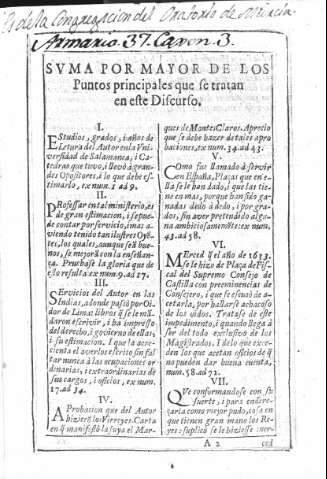 Es de la Congregacion del Oratorio de Murcia.
Armario. 37. Caxon. 3.
SVMA POR MAYOR DE LOS
Puntos principales que se tratan
en este Discurso.
I.
EStudios, grados, i años de
Letura del Autor en la Vni-
versidad de Salamanca, i Ca-
tedras que tuvo, i llevó à gran-
des Opositores, i lo que debe es-
timarlo, ex num. 1 ad 9.
II.
PRofessar en tal ministerio, es
de gran estimacion, i se pue-
de contar por servicio, i mas a-
viendo tenido tan ilustres Oyẽ-
tes, los quales, aunque sea bue-
nos, se mejorã con la enseñan-
ça. Pruebase la gloria que de
esto resulta ex num. 9. ad 17.
III.
SErvicios del Autor en las
Indias, adonde passò por Oi-
dor de Lima: libros q̃ se le mã-
daron escrivir, i ha impresso
del derecho, i govierno de ellas,
i su estimacion. I que la acre-
cienta el averlos escrito sin fal
tar nunca à las ocupaciones or
dinarias, i extraordinarias de
sus cargos, i oficios, ex num.
17. ad 34.
IV.
APprobacion que del Autor
hizierõ los Virreyes. Carta
en q̃ manifestò la suya el Mar-
ques de Montes Claros. Aprecio
que se debe hazer de tales apro
baciones, ex num. 34. ad 43.
V.
COmo fue llamado à servir
en España, Plaças que en e-
lla se le han dado, i que las tie-
ne en mas, porque han sido ga-
nadas dedo à dedo, i por gra-
dos, sin aver pretendido algu-
na ambiciosamente: ex num.
43. ad 58.
VI.
MErced q̃ el año de 1633.
se le hizo de Plaça de Fis-
cal del Supremo Consejo de
Castilla con preeminencias de
Consejero, i que se escusò de a-
cetarla, por hallarse achacoso
de los oidos. Tratase de este
impedimento, i quando llega à
ser del todo exclusivo de los
Magistrados. I de lo que exce-
den los que acetan oficios de q̃
no pueden dar buena cuenta,
num. 58. ad 72.
VII.
QVe conformandose con su
suerte, i para endere-
çarla como mejor pudo, cosa en
que tienen gran mano los Re-
yes: suplicò se le hiziesse mer-
A 2
ced